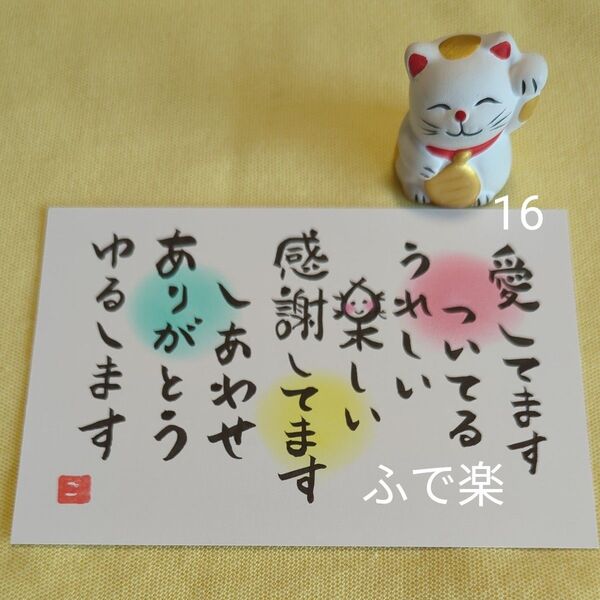 16
愛してます
ついてる
うれしい
楽しい
感謝してます
しあわせ
ありがとう
ゆるします
ふで楽